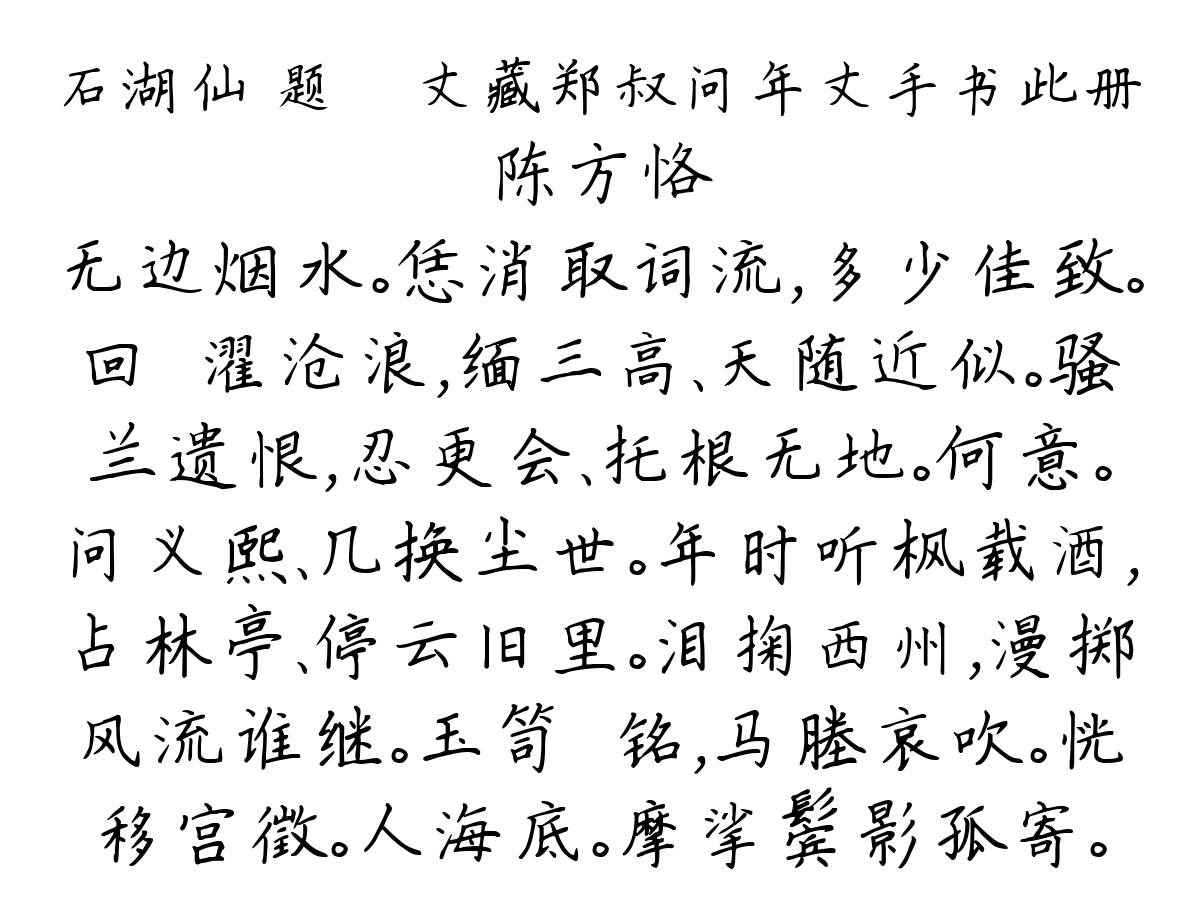 石湖仙 题 丈藏郑叔问年丈手书此册
陈方恪
无边烟水。恁消取词流,多少佳致。
回 濯沧浪,缅三高、天随近似。骚
兰遗恨,忍更会、托根无地。何意。
问义熙、几换尘世。年时听枫载酒,
占林亭、停云旧里。泪掬西州,漫掷
风流谁继。玉笥 铭,马塍哀吹。恍
移宫徵。人海底。摩挲鬓影孤寄。